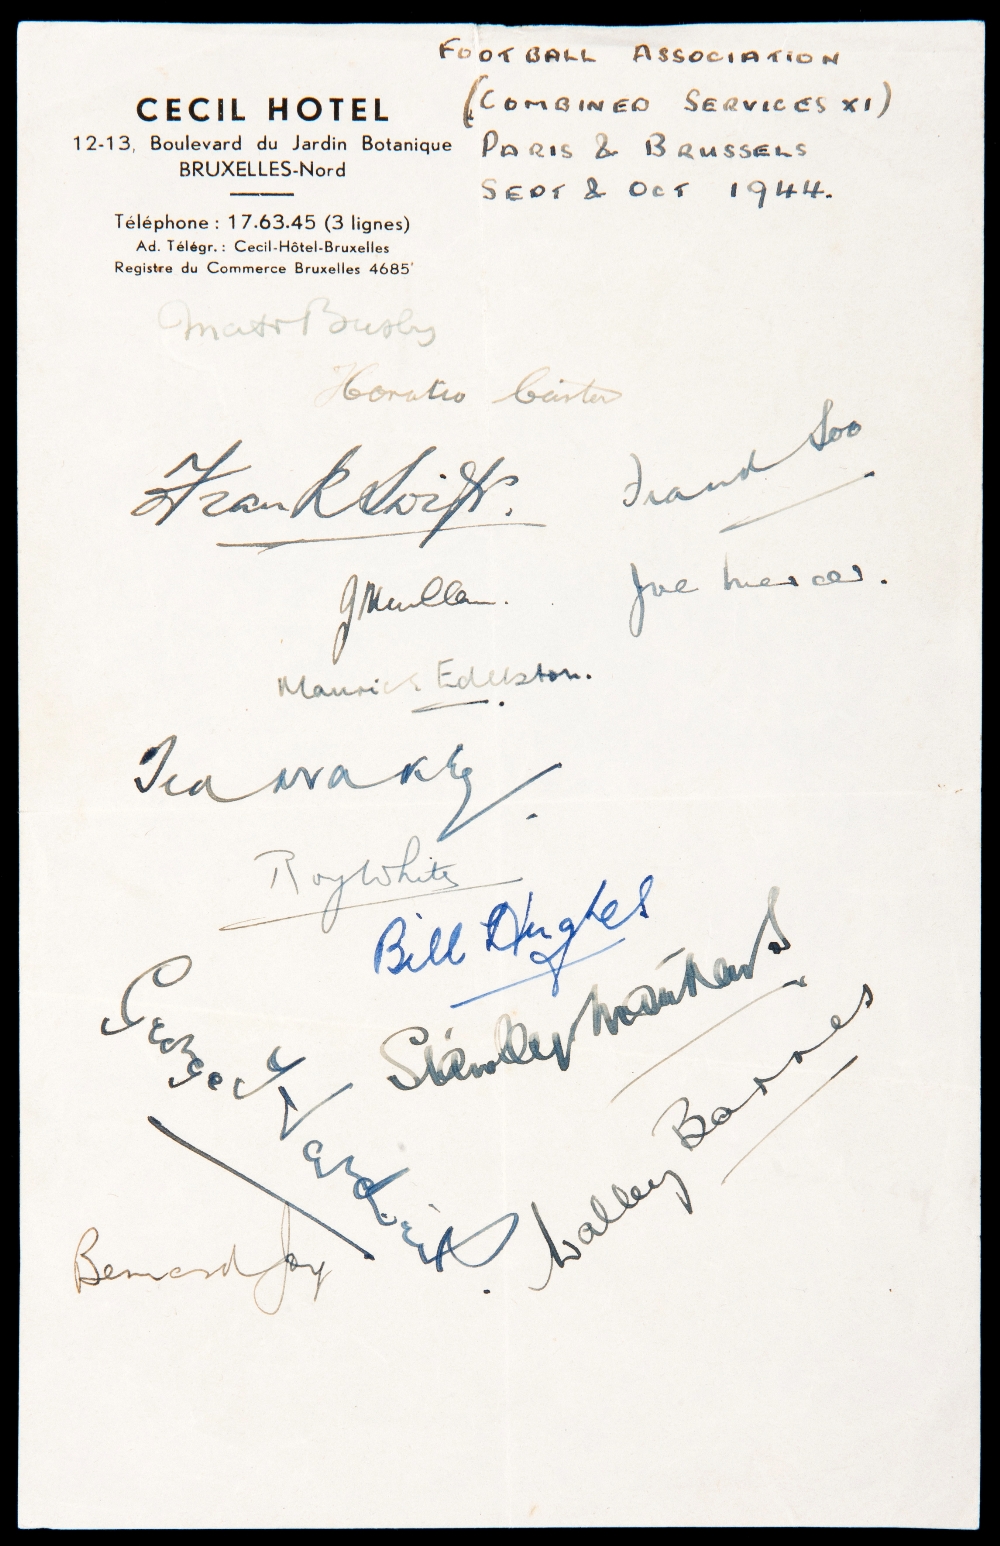 FOOTBALL ASSOCIATION
(COMBINED SERVICES XI)
PARIS & BRUSSELS
SEPT & OCT 1944.
CECIL HOTEL
12-13, Boulevard du Jardin Botanique
BRUXELLES-Nord
Téléphone : 17.63.45 (3 lignes)
Ad. Télégr. : Cecil-Hôtel-Bruxelles
Registre du Commerce Bruxelles 4685
Matt Busby
Horatio Carter
Frank Swift.
Frank Soo
J Mullen.
Joe Mercer.
Maurice Edelston.
Ted Drake
Roy White
Bill Hughes
Stanley Matthews
George
Walley Barnes
Bernard Joy